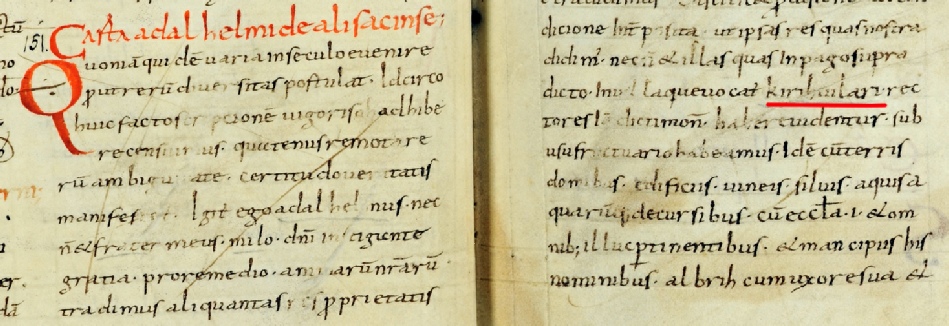 151.
Carta adalhelmi de alisacinse;
Quoniā quidē varia in seculo evenire
p̱ut rerū diversitas postulat. Idcirco
huic facto scripcionē vigoris adhibe
re censuimus. quatenus remota re
rū ambiguitate. certitudo veritatis
manifestet. Igit ego adalhelmus. nec
n̄ & frater meus. milo. dn̄i instigante
gratia. pro remedio. animarū nr̄arū
tradimus aliquantas res p̱prietatis
dicione hn̄t posita. ut ipsas res quas nostra
didim̄. necn̄ & illas quas In pago supra
dicto. In villa que vocat kiribuilari. rec
tores
haberi videntur. sub
usufructuario habeamus. Id ē cū terris
domibus. edificiis. vineis. silvis. aquis a
quarūq; decursibus. cū eccl̄a. i. & om
nib; illuc p̱tinentibus. & mancipiis his
nominibus. albrih cum uxore sua &